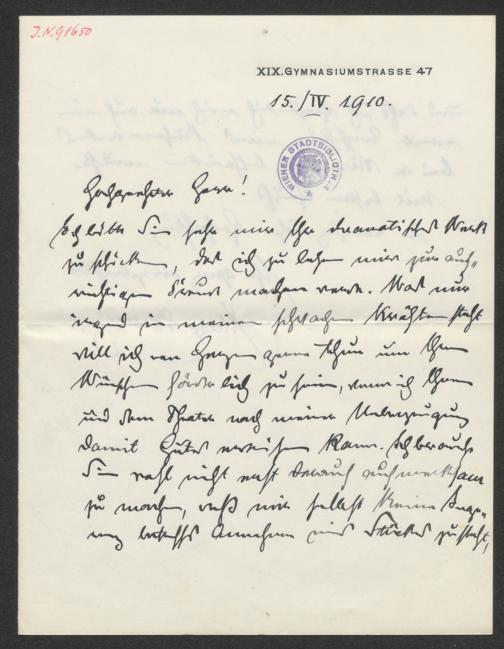 J.N.91650
XIX. GYMNASIUMSTRASSE 47
15./IV. 1910.
WIENER STADTBIBLIOTHEK
Hochgeehrter Herr!
Ich bitte Sie sehr mir Ihr dramatisches Werk
zu schicken, das ich zu lesen mir zur auf-
richtigen Freude machen werde. Was nur
irgend in meinen schwachen Kräften steht
will ich von Herzen gerne thun um Ihren
Wünschen förderlich zu sein, wenn ich Ihnen
und dem Theater nach meiner Ueberzeugung
damit Gutes erweisen kann. Ich brauche
Sie wohl nicht erst darauf aufmerksam
zu machen, daß mir selbst keine
betreffs Annahme eines Stückes zusteht,